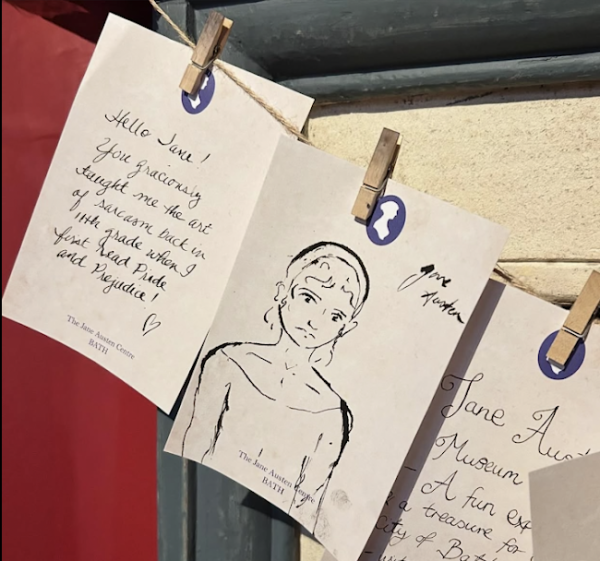 Hello Jane!
You graciously
taught me the art
of sarcasm back in
11th grade when I
first read Pride
and Prejudice!
The Jane Austen Centre
BATH
Jane
Austen
The Jane Austen Centre
BATH
Jane Aust
Museum
- A fun exp
a treasure for
city of Bath